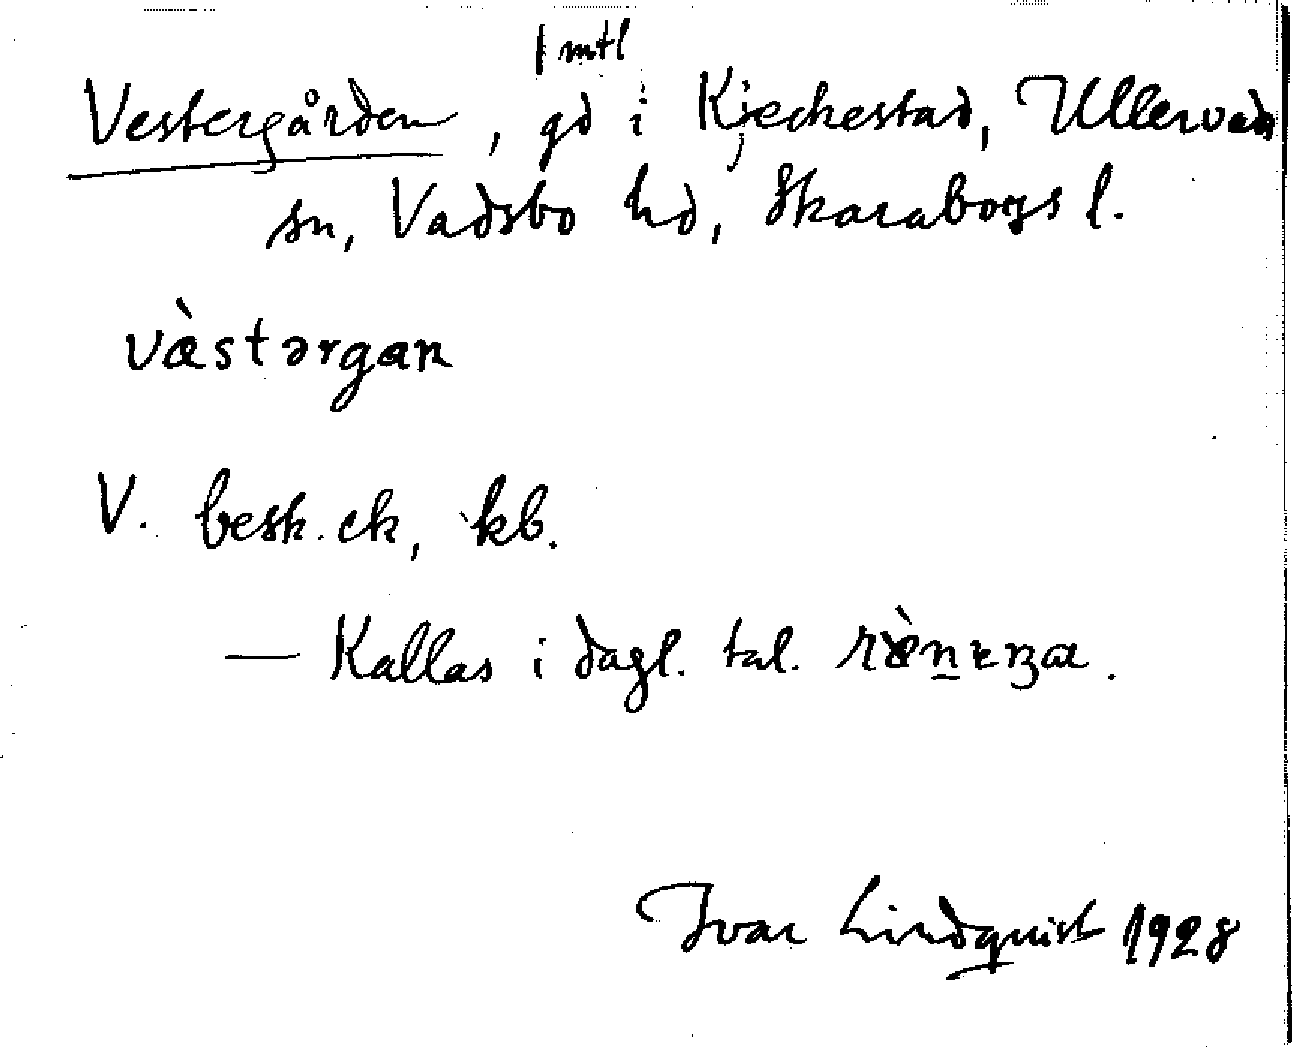 1 mtl
Vestergården, gd i Kjeckestad, Ullervads
sn, Vadsbo hd, Skaraborgs l.
væ̀stərgan
V. besk. ek, kb.
— Kallas i dagl. tal.
Ivar Lindquist 1928